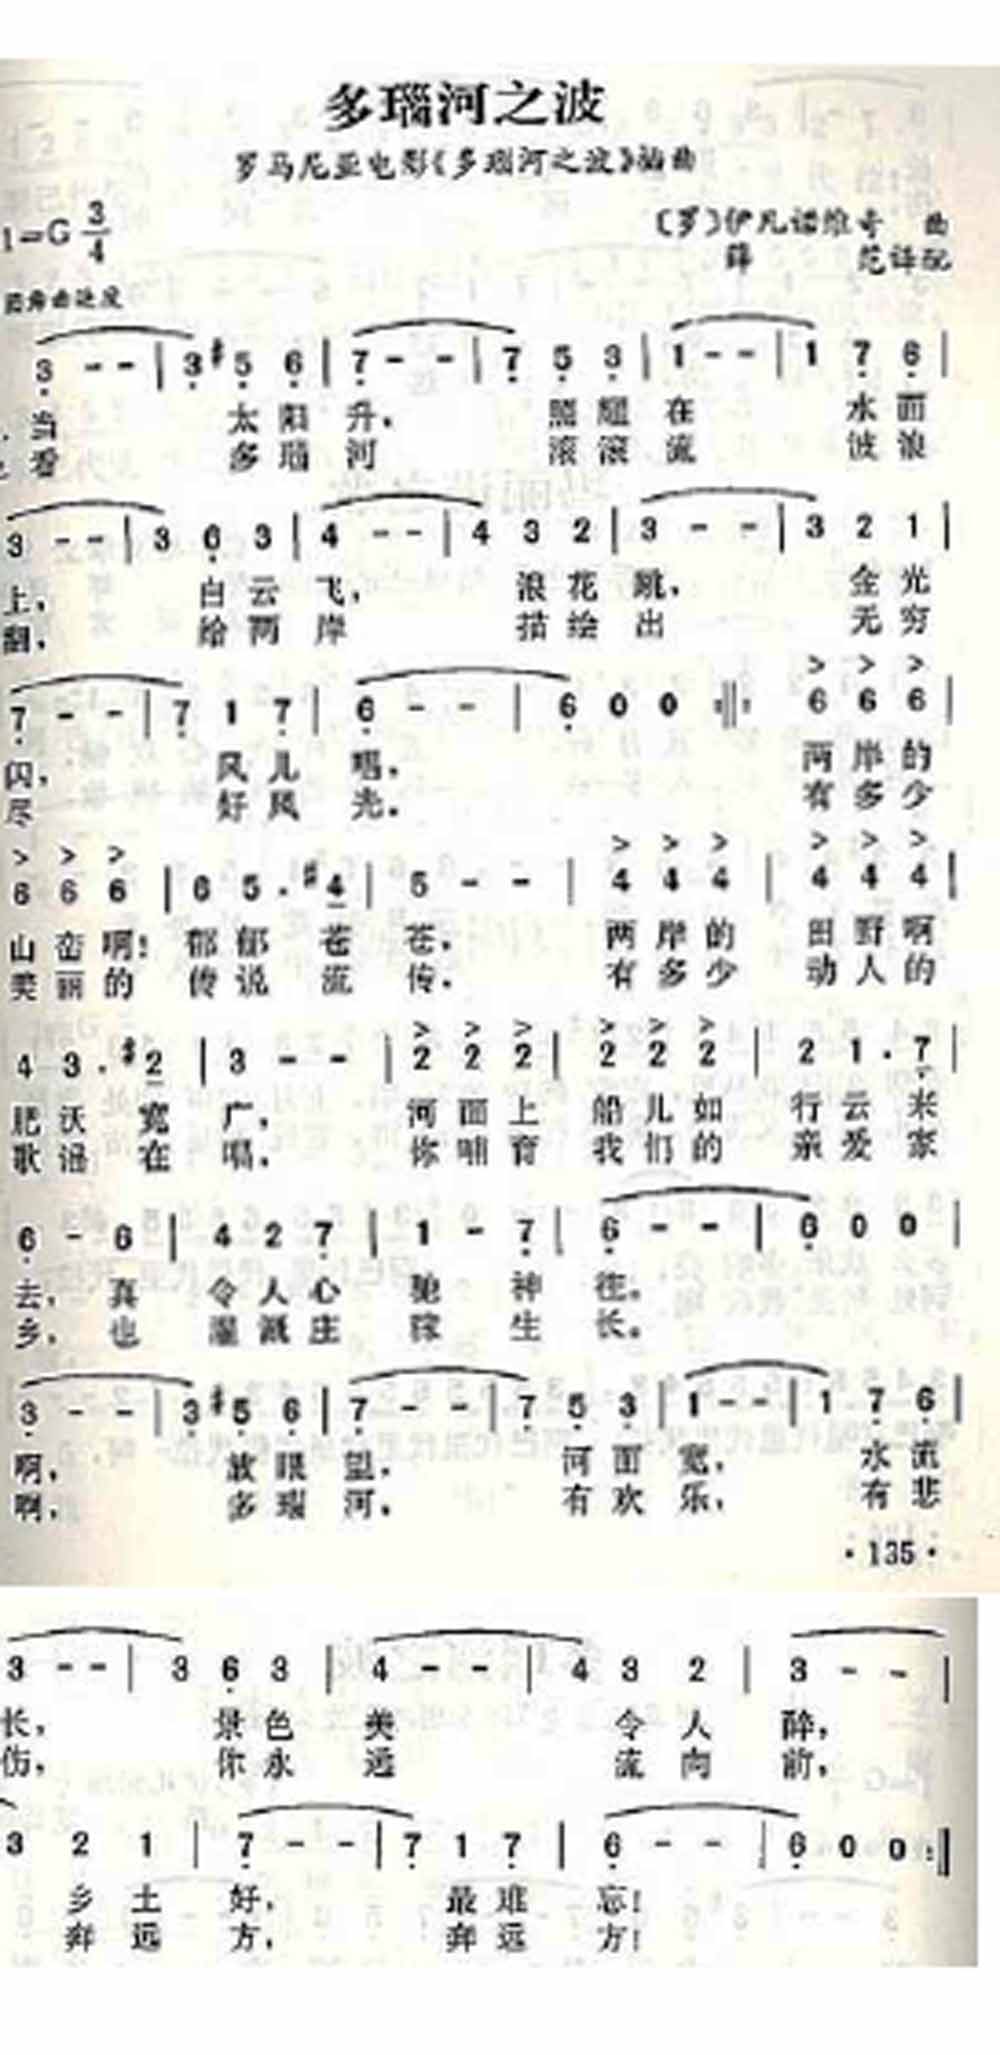 多瑙河之波
罗马尼亚电影《多瑙河之波》插曲
1=G 3/4
〔罗〕伊凡诺维奇 曲
薛 范译配
圆舞曲速度
3 - - | 3 #5 6 | 7 - - | 7 5 3 | 1 - - | 1 7 6 |
当 太阳 升， 照耀 在 水面
看 多瑙 河 滚滚 流 波浪
3 - - | 3 6 3 | 4 - - | 4 3 2 | 3 - - | 3 2 1 |
上， 白云 飞， 浪花 跳， 金光
翻， 给两 岸 描绘 出 无穷
> > >
7 - - | 7 1 7 | 6 - - | 6 0 0 :‖: 6 6 6 |
闪， 风儿 唱， 两岸的
尽 好风 光。 有多少
> > > > > > > > >
6 6 6 | 6 5 . #4 | 5 - - | 4 4 4 | 4 4 4 |
山峦啊！郁郁 苍 苍， 两岸的 田野啊
美丽的 传说 流 传。 有多少 动人的
> > > > > >
4 3 . #2 | 3 - - | 2 2 2 | 2 2 2 | 2 1 . 7 |
肥沃 宽 广， 河面上 船儿如 行云 来
歌谣 在 唱， 你哺育 我们的 亲爱 家
6 - 6 | 4 2 7 | 1 - 7 | 6 - - | 6 0 0 |
去， 真 令人心 驰 神 往。
乡， 也 灌溉庄 稼 生 长。
3 - - | 3 #5 6 | 7 - - | 7 5 3 | 1 - - | 1 7 6 |
啊， 放眼 望， 河面 宽， 水流
啊， 多瑙 河， 有欢 乐， 有悲
· 135 ·
3 - - | 3 6 3 | 4 - - | 4 3 2 | 3 - - |
长， 景色 美 令人 醉，
伤， 你永 远 流向 前，
3 2 1 | 7 - - | 7 1 7 | 6 - - | 6 0 0 :‖
乡土 好， 最难 忘！
奔远 方， 奔远 方！